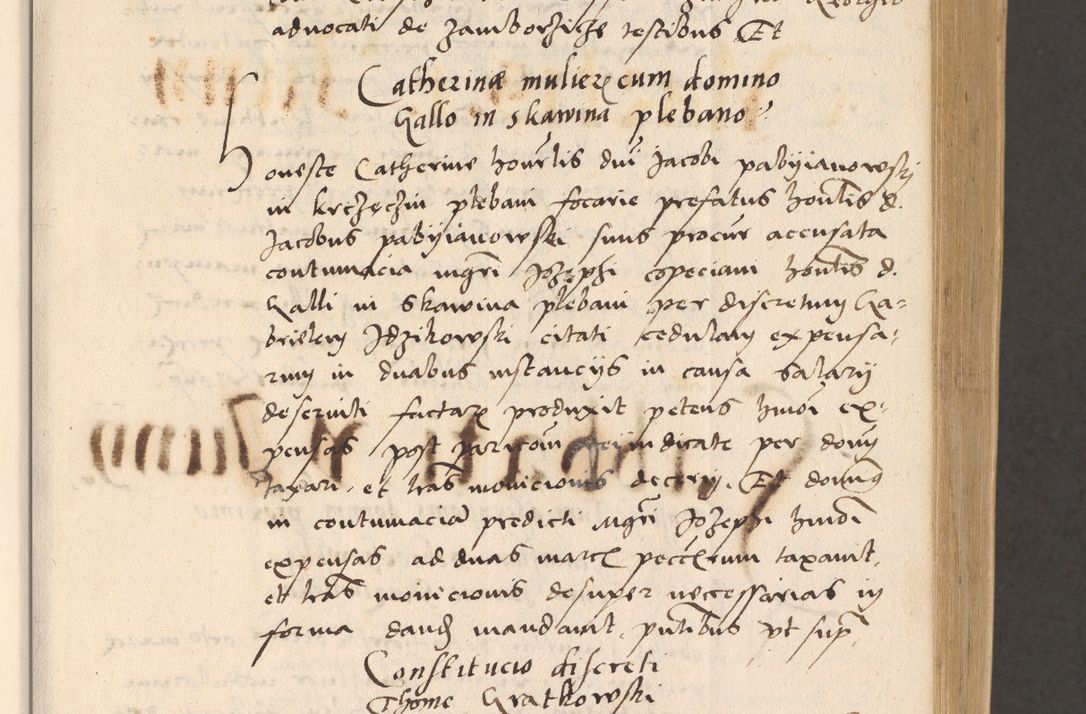 advocati de Zamborzicze testibus Et
Catherinæ mulieris cum domino
Gallo in Skawina plebano
Honeste Catherine honorabilis dni Jacobi pabijianowski
in krczęczin plebani focarie prefatus honlis d.
Jacobus pabijianowski suus procur accusata
contumacia mgri Jozephi copeciani honlis d.
Galli in Skawina plebani per discretum Ga-
brielem Idzikowski citati cedulam expensa-
rum in duabus instancijs in causa salarij
deserviti factar produxit petens hmoi ex-
pensas post per dnm
taxari, et lras monicionis decerni. Et dominus
in contumaciam predicti mgri Jozephi hmoi
expensas ad duas marcas taxavit,
et lras monicionis desuper necessarias in
forma dand mandavit, pntibus ut sup
Constitucio discreti
Thome Gratkowski